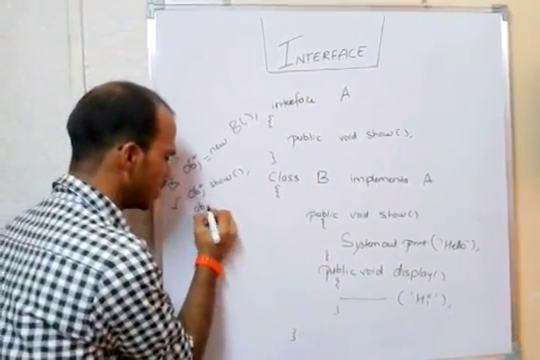 INTERFACE
interface A
{
public void show();
}
Class B implements A
{
public void show()
{
System.out.print("Hello");
}
public void display()
{
("Hi");
}
}
B obj = new B();
obj show();
ob